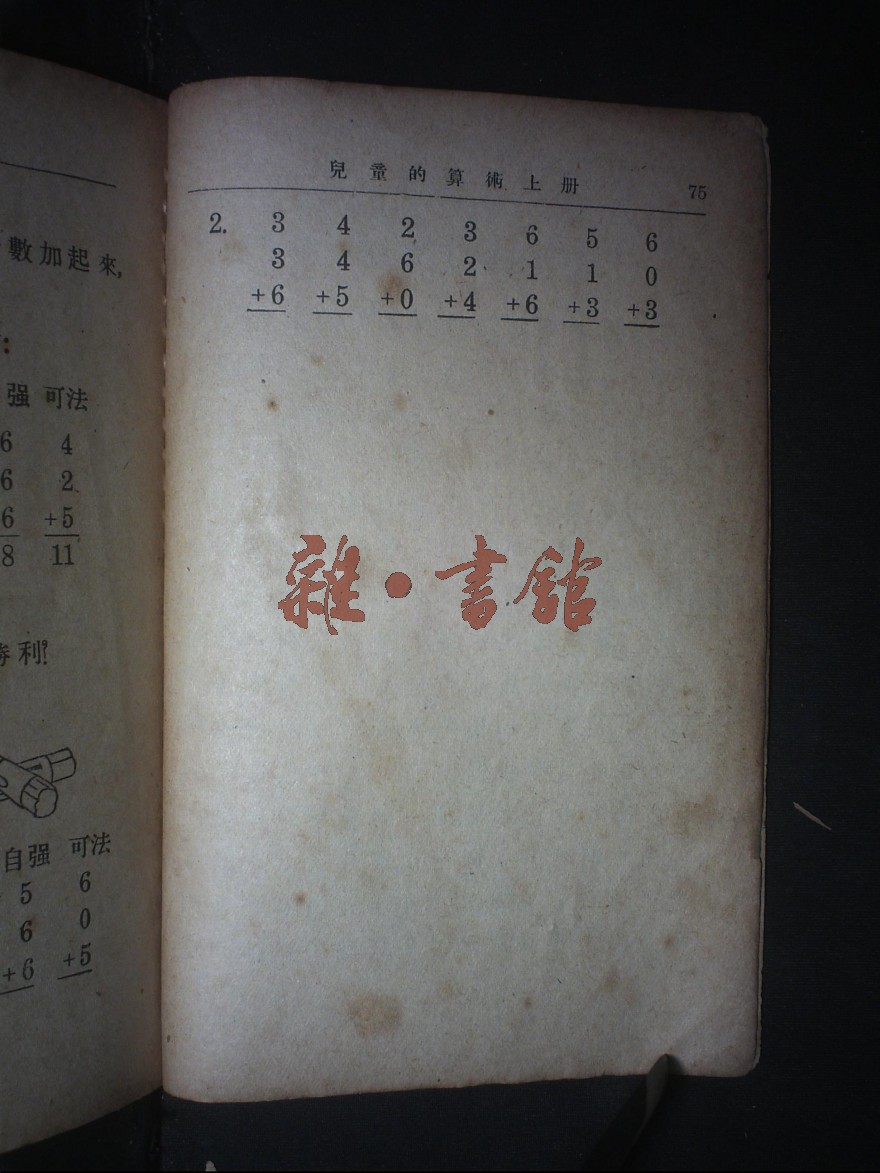 數加起來,
:
强 可法
6 4
6 2
6 +5
8 11
勝利?
自强 可法
5 6
6 0
+6 +5
兒童的算術上册 75
2. 3 4 2 3 6 5 6
3 4 6 2 1 1 0
+6 +5 +0 +4 +6 +3 +3
雜·書館